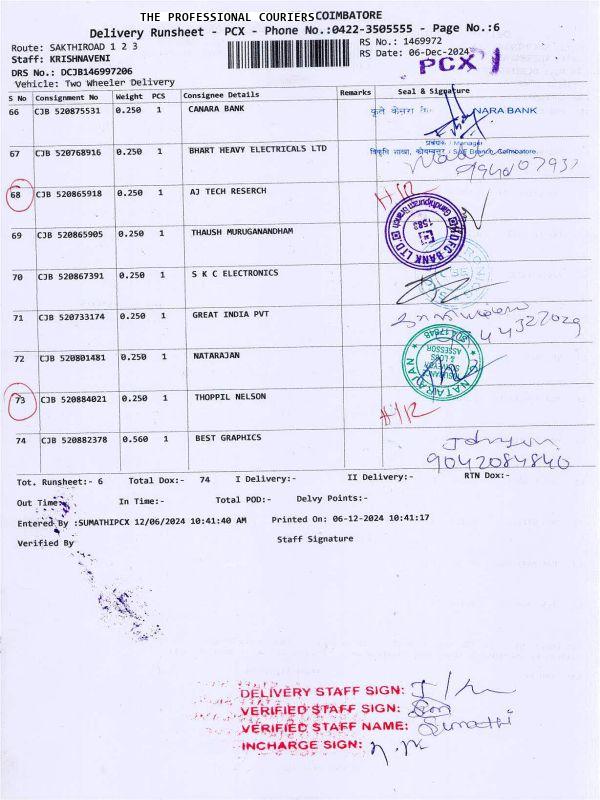 THE PROFESSIONAL COURIERSCOIMBATORE
Delivery Runsheet - PCX - Phone No.:0422-3505555 - Page No.:6
Route: SAKTHIROAD 1 2 3
RS No.: 1469972
Staff: KRISHNAVENI
RS Date: 06-Dec-2024
PCX 1
DRS No.: DCJB146997206
Vehicle: Two Wheeler Delivery
S No Consignment No Weight PCS Consignee Details Remarks Seal & Signature
66 CJB 520875531 0.250 1 CANARA BANK
NARA BANK
प्रबंधक / Manager
67 CJB 520768916 0.250 1 BHART HEAVY ELECTRICALS LTD
68 CJB 520865918 0.250 1 AJ TECH RESERCH
HDFC BANK LTD.
Gandhipuram Branch
1583
69 CJB 520865905 0.250 1 THAUSH MURUGANANDHAM
70 CJB 520867391 0.250 1 S K C ELECTRONICS
71 CJB 520733174 0.250 1 GREAT INDIA PVT
72 CJB 520801481 0.250 1 NATARAJAN
NATARAJAN
73 CJB 520884021 0.250 1 THOPPIL NELSON
74 CJB 520882378 0.560 1 BEST GRAPHICS
9042084840
Tot. Runsheet:- 6 Total Dox:- 74 I Delivery:- II Delivery:- RTN Dox:-
Out Time:- In Time:- Total POD:- Delvy Points:-
Entered By :SUMATHIPCX 12/06/2024 10:41:40 AM Printed On: 06-12-2024 10:41:17
Verified By Staff Signature
DELIVERY STAFF SIGN:
VERIFIED STAFF SIGN:
VERIFIED STAFF NAME: Sumathi
INCHARGE SIGN: